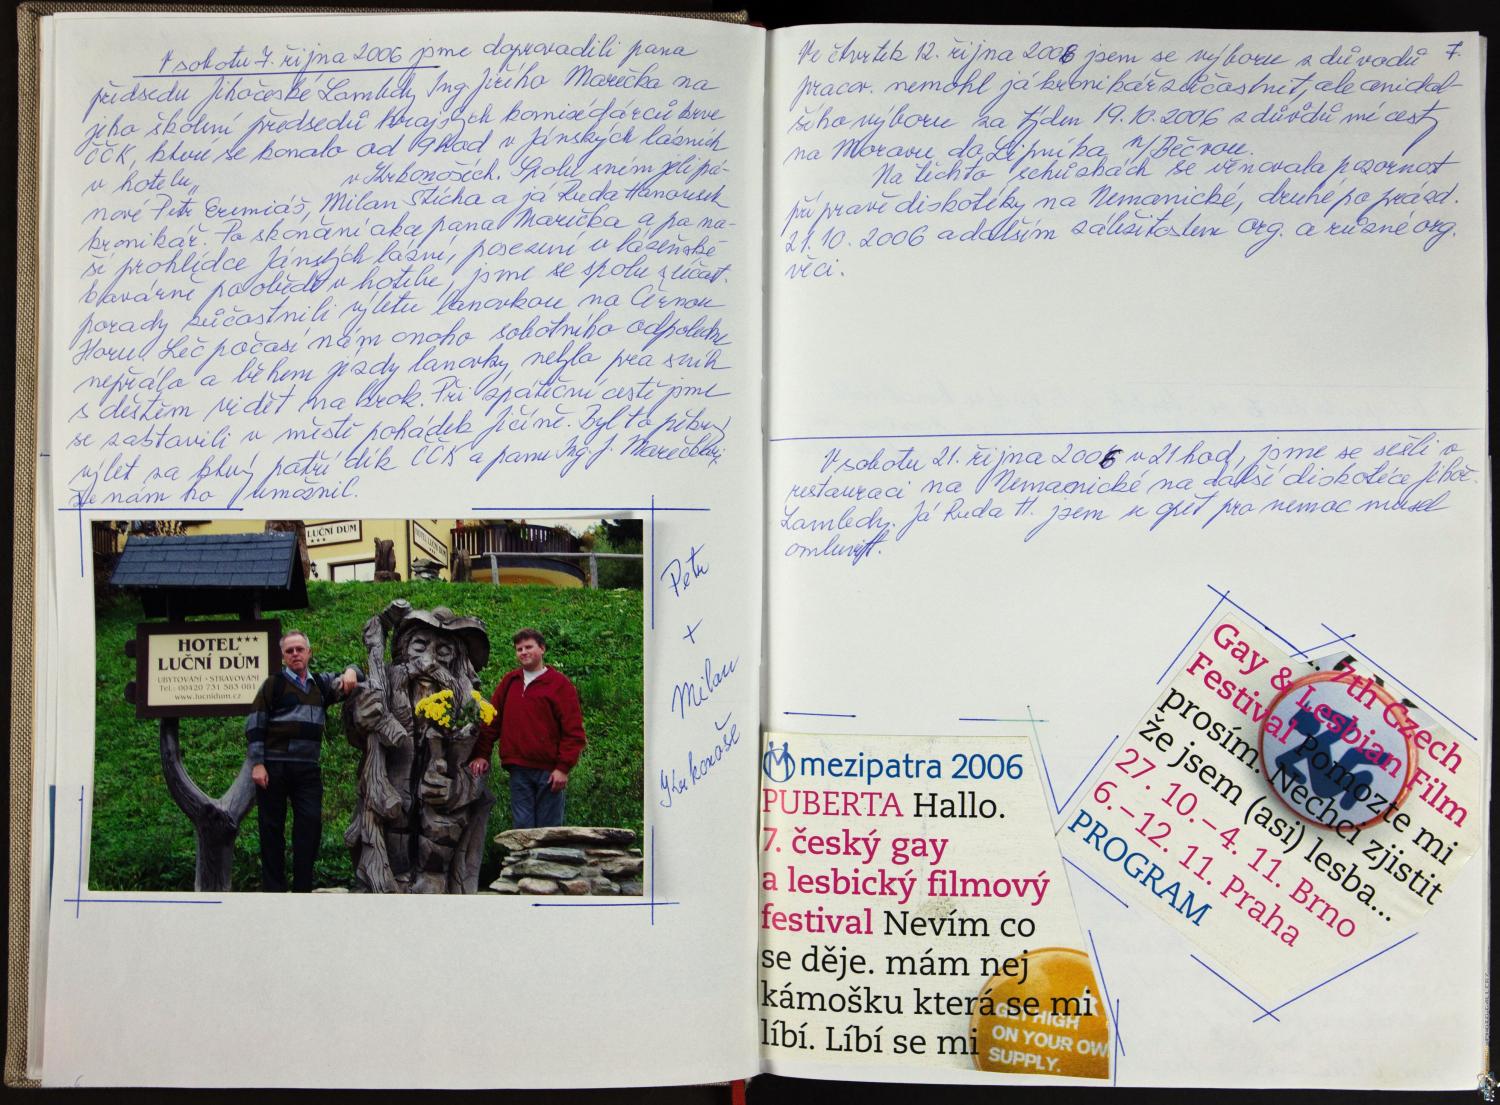 V sobotu 7. října 2006 jsme doprovodili pana
předsedu Jihočeské Lambdy Ing. Jiřího Marečka na
jeho školení předsedů krajských komisí dárců krve
ČČK, které se konalo od 9 hod v Jánských lázních
v hotelu „ v Krkonoších. Spolu s ním jeli pá-
nové Petr Eremiáš, Milan Štícha a já Ruda Hanousek
kronikář. Po skončení akce pana Marečka a po na-
ší prohlídce Jánských lázní, posezení v lázeňské
kavárně po obědě v hotelu, jsme se spolu s účast.
porady zúčastnili výletu lanovkou na Černou
Horu. Leč počasí nám onoho sobotního odpoledne
nepřálo a během jízdy lanovky nebylo pro sníh
s deštěm vidět na krok. Při zpáteční cestě jsme
se zastavili v městě pohádek Jičíně. Byl to pěkný
výlet za který patří dík ČČK a panu Ing. J. Marečkovi,
že nám ho umožnil.
LUČNÍ DŮM
HOTEL LUČNÍ DŮM
HOTEL***
LUČNÍ DŮM
UBYTOVÁNÍ • STRAVOVÁNÍ
Tel.: 00420 731 583 081
www.lucnidum.cz
Petr
+
Milan
Krkonoše
7.
Ve čtvrtek 12. října 2006 jsem se výboru z důvodů
pracov. nemohl já kronikář zúčastnit, ale ani dal-
šího výboru za týden 19.10.2006 z důvodů mé cesty
na Moravu do Lipníka n/Bečvou.
Na těchto schůzkách se věnovala pozornost
přípravě diskotéky na Nemanické, druhé po prázd.
21.10.2006 a dalším záležitostem org. a různé org.
věci.
V sobotu 21. října 2006 v 21 hod, jsme se sešli v
restauraci na Nemanické na další diskotéce Jihoč.
Lambdy. Já Ruda H. jsem se opět pro nemoc musel
omluvit.
mezipatra 2006
PUBERTA Hallo.
7. český gay
a lesbický filmový
festival Nevím co
se děje. mám nej
kámošku která se mi
líbí. Líbí se mi
GET HIGH
ON YOUR OWN
SUPPLY.
... 7th Czech
Gay & Lesbian Film
Festival Pomozte mi
prosím. Nechci zjistit
že jsem (asi) lesba...
27. 10.–4. 11. Brno
6.–12. 11. Praha
PROGRAM